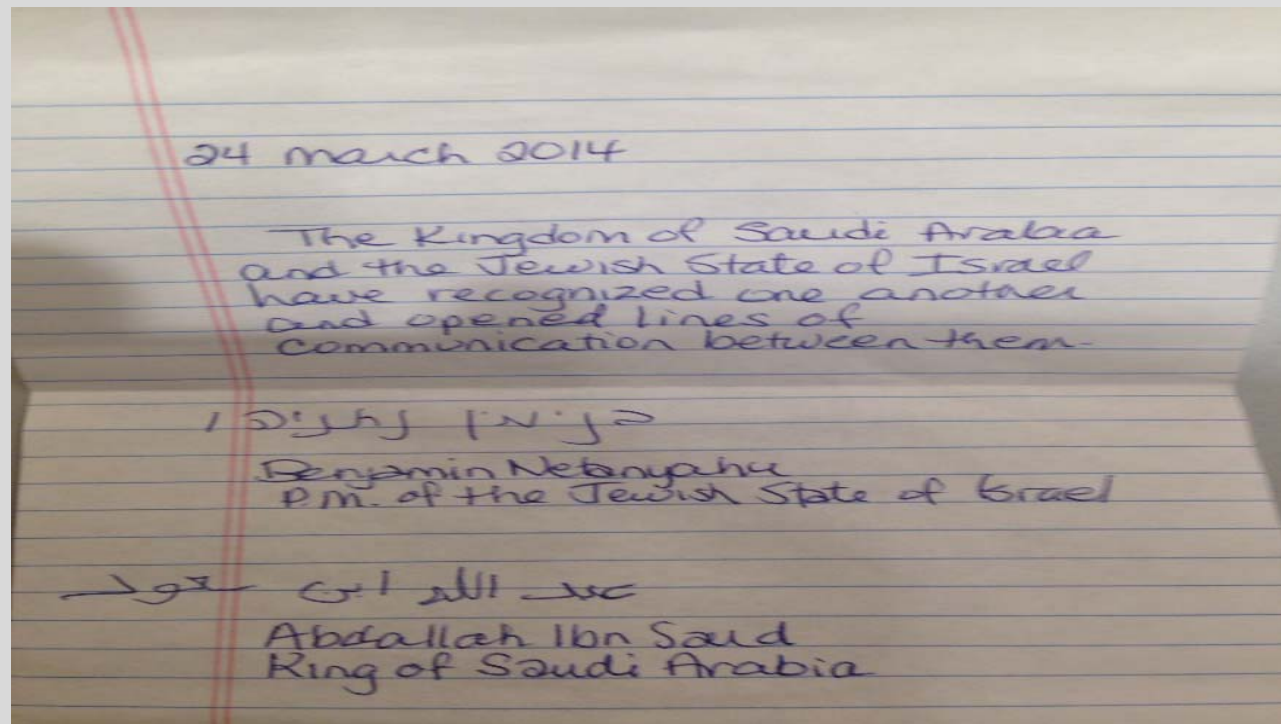 24 March 2014
The Kingdom of Saudi Arabia
and the Jewish State of Israel
have recognized one another
and opened lines of
communication between them.
בנימין נתניהו
Benjamin Netanyahu
P.M. of the Jewish State of Israel
عبد الله ابن سعود
Abdallah Ibn Saud
King of Saudi Arabia